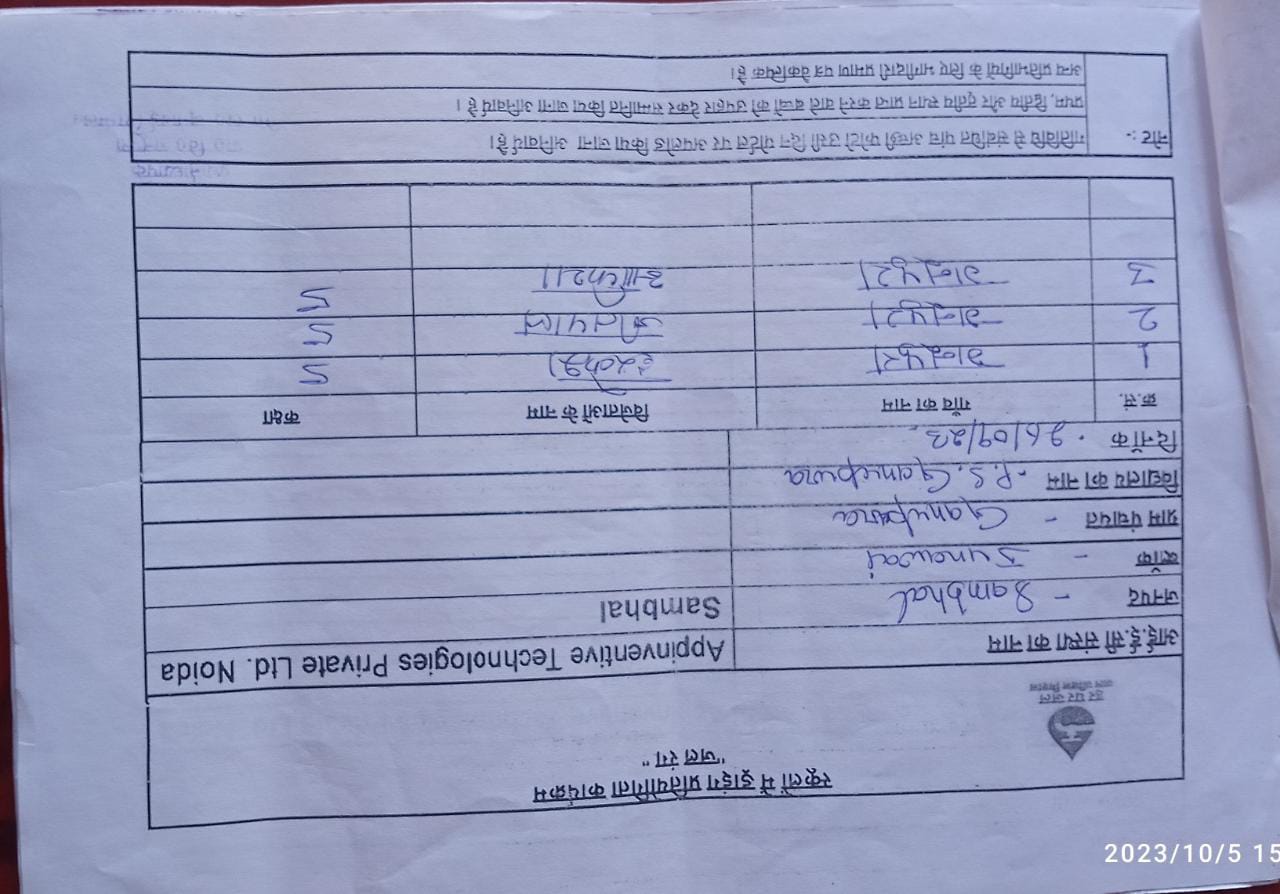 स्कूलों में ड्राइंग प्रतियोगिता कार्यक्रम
"जल रंग"
हर घर जल
जल जीवन मिशन
आई.ई.सी संस्था का नाम Appinventive Technologies Private Ltd. Noida
जनपद - Sambhal Sambhal
ब्लॉक - Junawai
ग्राम पंचायत - Ganupura
विद्यालय का नाम - P.S. Ganupura
दिनाँक - 26/09/23
क्र.सं. गाँव का नाम विजेताओं के नाम कक्षा
1 गनुपुरा 5
2 गनुपुरा 5
3 गनुपुरा 5
नोट :- गतिविधि से संबंधित पांच अच्छी फोटो उसी दिन पोर्टल पर अपलोड किया जाना अनिवार्य है।
प्रथम, द्वितीय और तृतीय स्थान प्राप्त करने वाले बच्चों को उपहार देकर सम्मानित किया जाना अनिवार्य है।
अन्य प्रतिभागियों के लिए भागीदारी प्रमाण पत्र वैकल्पिक है।
2023/10/5 15